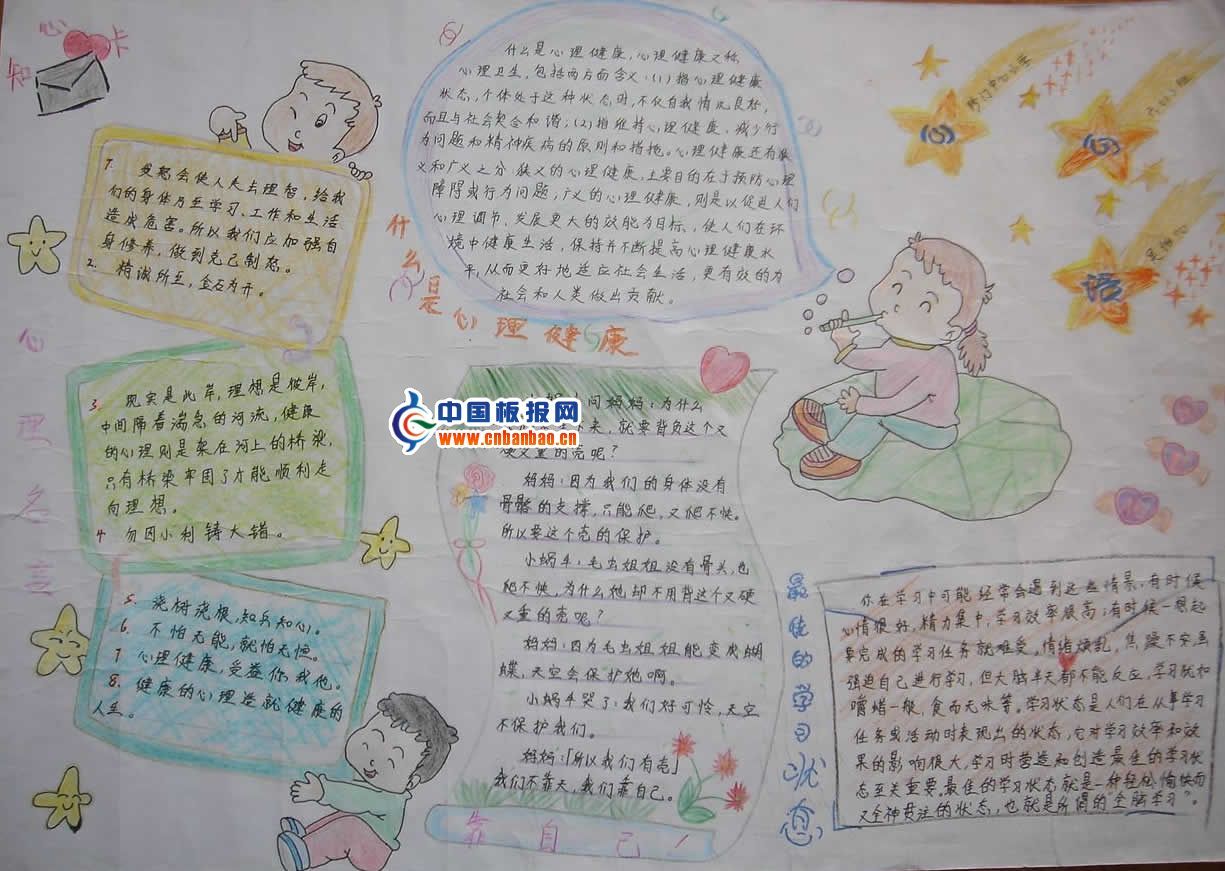 知心卡
心理名言
1. 发怒会使人失去理智,给我
们的身体乃至学习、工作和生活
造成危害。所以我们应加强自
身修养,做到克己制怒。
2. 精诚所至,金石为开。
3. 现实是此岸,理想是彼岸,
中间隔着湍急的河流,健康
的心理则是架在河上的桥梁,
只有桥梁牢固了才能顺利走
向理想。
4 勿因小利铸大错。
5. 浇树浇根,知兵知心。
6. 不怕无能,就怕无恒。
7 心理健康,受益你我他。
8. 健康的心理造就健康的
人生。
什么是心理健康
什么是心理健康,心理健康又称
心理卫生,包括两方面含义:(1)指心理健康
状态,个体处于这种状态时,不仅自我情况良好,
而且与社会契合和谐;(2)指维持心理健康、减少行
为问题和精神疾病的原则和措施。心理健康还有狭
义和广义之分:狭义的心理健康,主要目的在于预防心理
障碍或行为问题;广义的心理健康,则是以促进人们
心理调节、发展更大的效能为目标,使人们在环
境中健康生活,保持并不断提高心理健康水
平,从而更好地适应社会生活,更有效的为
社会和人类做出贡献。
中国板报网
www.cnbanbao.cn
问妈妈:为什么
来,就要背负这个又
硬又重的壳呢?
妈妈:因为我们的身体没有
骨骼的支撑,只能爬,又爬不快。
所以要这个壳的保护。
小蜗牛:毛虫姐姐没有骨头,也
爬不快,为什么她却不用背这个又硬
又重的壳呢?
妈妈:因为毛虫姐姐能变成蝴
蝶,天空会保护她啊。
小蜗牛哭了:我们好可怜,天空
不保护我们。
妈妈:「所以我们有壳」
我们不靠天,我们靠自己。
靠自己!
心
心
语
最佳的学习状态
你在学习中可能经常会遇到这些情景:有时候
心情很好,精力集中,学习效率极高;有时候一想起
要完成的学习任务就难受,情绪烦乱,焦躁不安,虽
强迫自己进行学习,但大脑半天都不能反应,学习犹如
嚼蜡一般,食而无味等。学习状态是人们在从事学习
任务或活动时表现出的状态,它对学习效率和效
果的影响很大,学习时营造和创造最佳的学习状
态至关重要。最佳的学习状态就是一种轻松愉快而
又全神贯注的状态,也就是所谓的"全脑学习"。